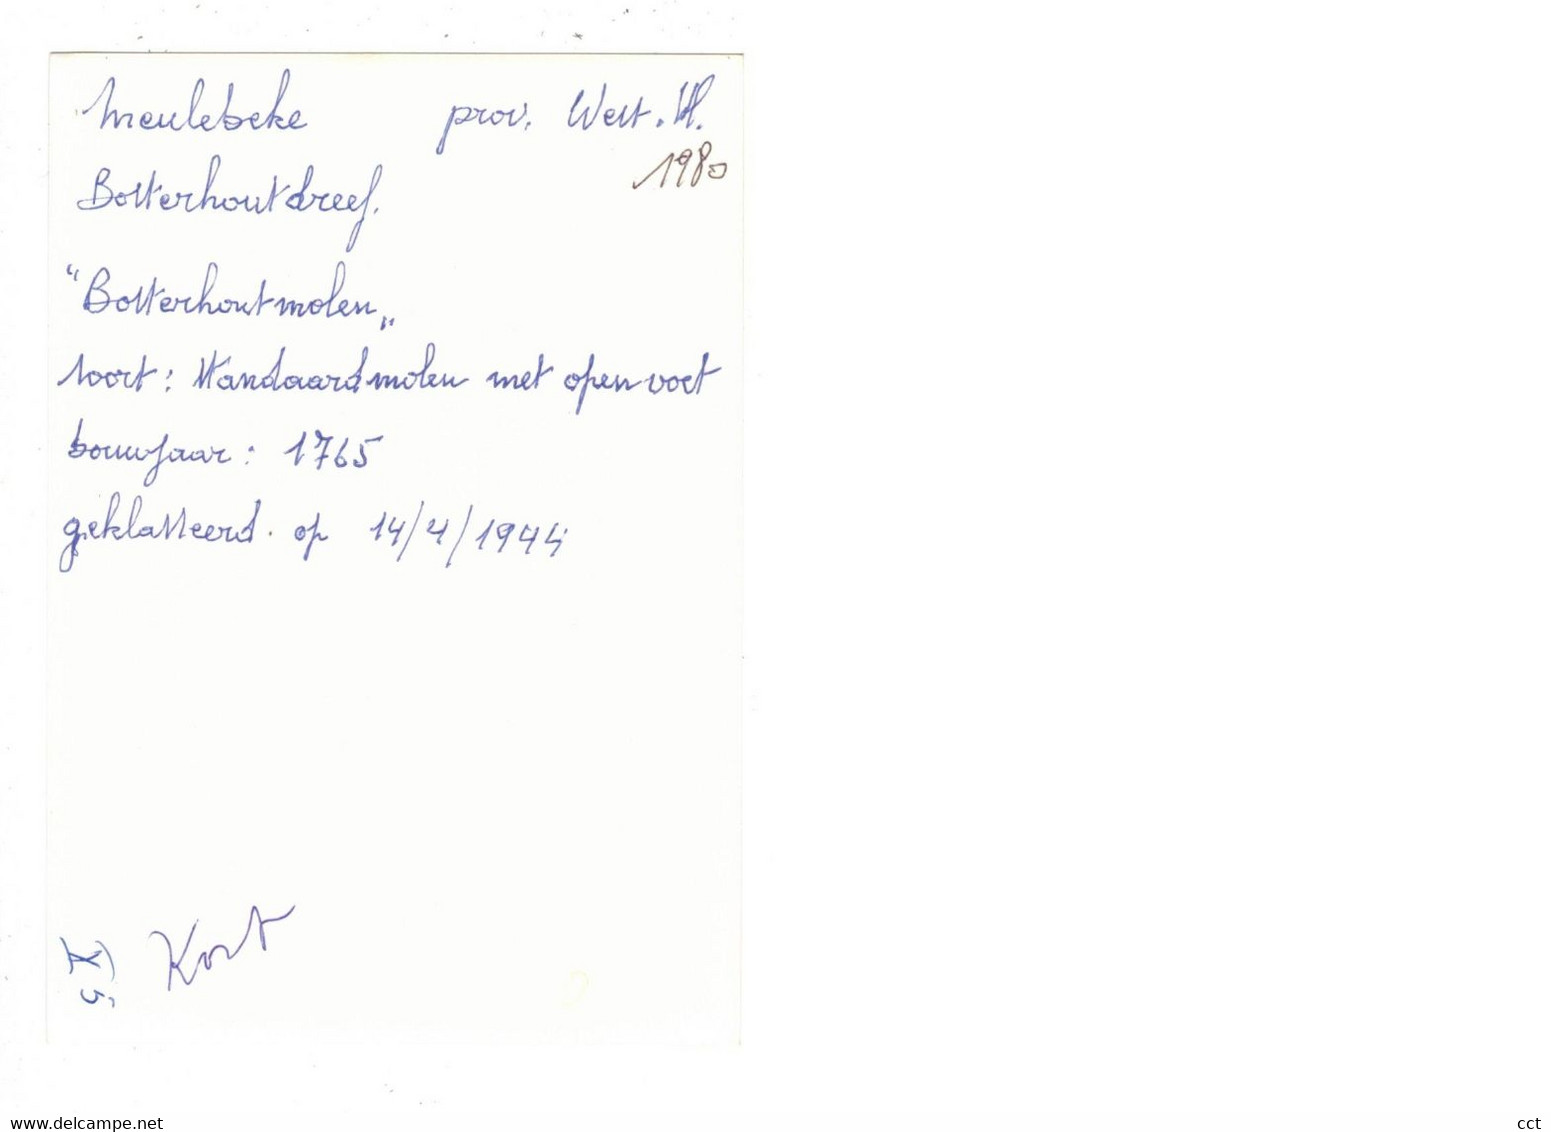 Meulebeke prov. West. Vl.
1980
Bosterhoutdreef.
"Bosterhoutmolen„
soort: standaardmolen met open voet
bouwjaar: 1765
geklasseerd. op 14/4/1944
Kort
www.delcampe.net cct